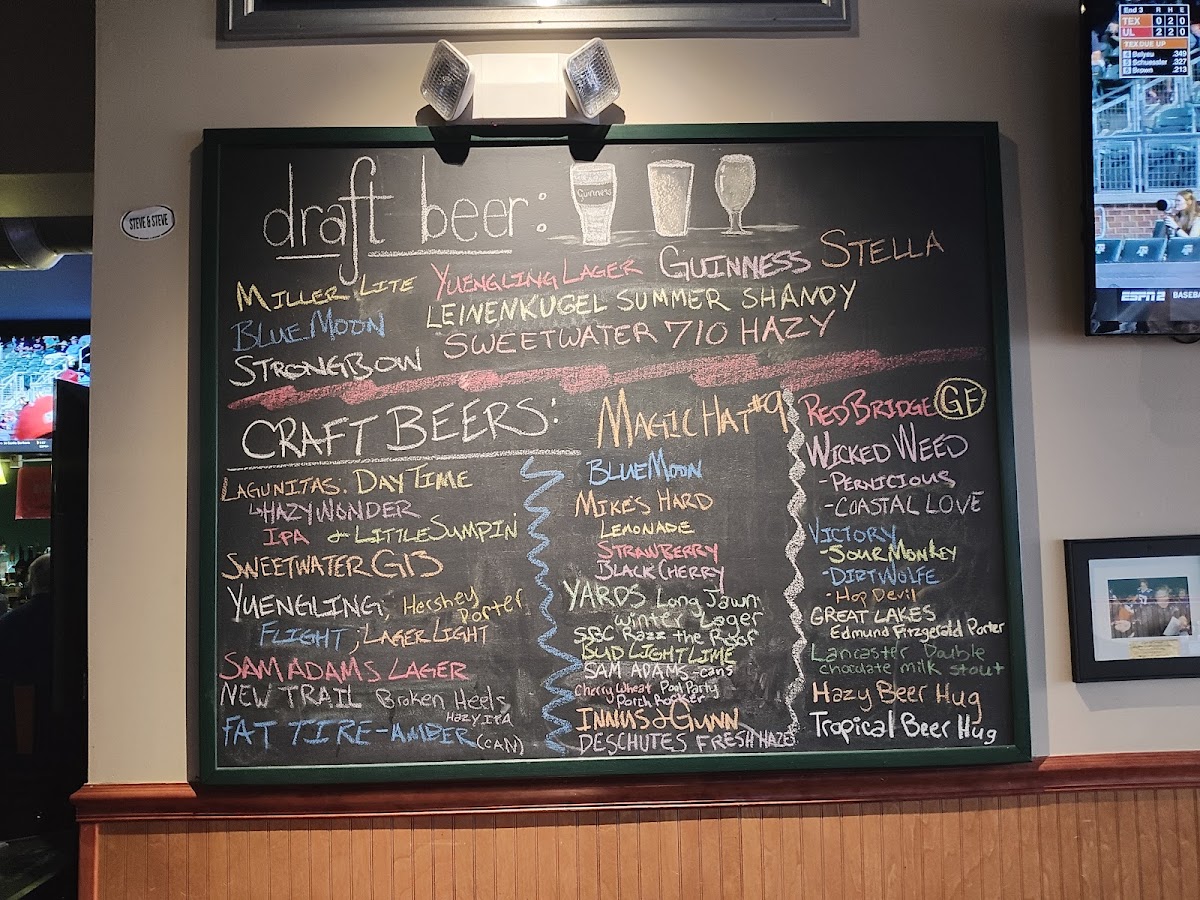 draft beer:
Guinness
MILLER LITE YUENGLING LAGER GUINNESS STELLA
BLUE MOON LEINENKUGEL SUMMER SHANDY
STRONGBOW SWEETWATER 710 HAZY
CRAFT BEERS:
LAGUNITAS. DAYTIME
↳HAZY WONDER
IPA & LITTLE SUMPIN'
SWEETWATER G13
YUENGLING, Hershey Porter
FLIGHT; LAGER LIGHT
SAM ADAMS LAGER
NEW TRAIL Broken Heels
HAZY IPA
FAT TIRE-AMBER (CAN)
MAGIC HAT #9
BLUE MOON
MIKE'S HARD
LEMONADE
STRAWBERRY
BLACK CHERRY
YARDS Long Jawn
Winter Lager
SBC Razz the Roof
BUD LIGHT LIME
SAM ADAMS-cans
Cherry Wheat Pool Party
Porch Rocker
INNUS & GUNN
DESCHUTES FRESH HAZE
RED BRIDGE GF
WICKED WEED
-PERNICIOUS
-COASTAL LOVE
VICTORY
-SOUR MONKEY
-DIRTWOLFE
-Hop Devil
GREAT LAKES
Edmund Fitzgerald Porter
Lancaster Double
chocolate milk stout
Hazy Beer Hug
Tropical Beer Hug
STEVE & STEVE
End 3 R H E
TEX 0 2 0
UL 2 2 0
TEX DUE UP
4 Belyeu .349
5 Schuessler .327
6 Brown .213
ESPN2 BASEBA